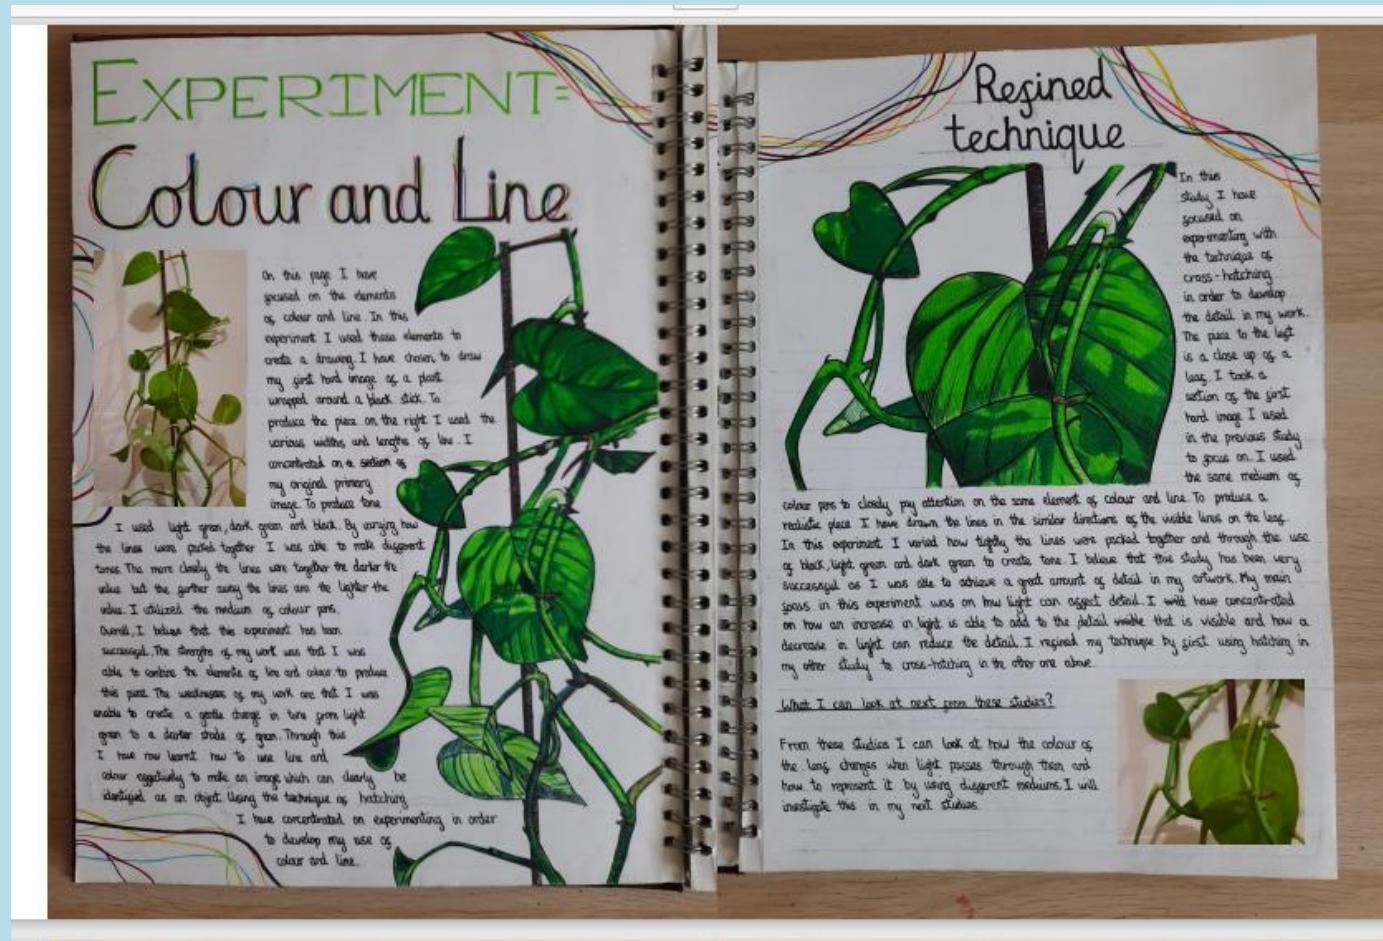 EXPERIMENT:
Colour and Line
On this page I have
focused on the elements
of colour and line. In this
experiment I used these elements to
create a drawing. I have chosen to draw
my first hand image of a plant
wrapped around a black stick. To
produce the piece on the right I used the
various widths and lengths of line. I
concentrated on a section of
my original primary
image. To produce tone
I used light green, dark green and black. By varying how
the lines were packed together I was able to make different
tones. The more closely the lines were together the darker the
value but the further away the lines are the lighter the
value. I utilized the medium of colour pens.
Overall, I believe that this experiment has been
successful. The strengths of my work was that I was
able to combine the elements of line and colour to produce
this piece. The weaknesses of my work are that I was
unable to create a gentle change in tone from light
green to a darker shade of green. Through this
I have now learnt how to use line and
colour effectively to make an image which can clearly be
identified as an object. Using the technique of hatching
I have concentrated on experimenting in order
to develop my use of
colour and line.
Refined
technique
In this
study I have
focused on
experimenting with
the technique of
cross-hatching
in order to develop
the detail in my work.
The piece to the left
is a close up of a
leaf. I took a
section of the first
hand image I used
in the previous study
to focus on. I used
the same medium of
colour pens to closely pay attention on the same element of colour and line. To produce a
realistic piece I have drawn the lines in the similar directions of the visible lines on the leaf.
In this experiment I varied how tightly the lines were packed together and through the use
of black, light green and dark green to create tone. I believe that this study has been very
successful as I was able to achieve a great amount of detail in my artwork. My main
focus in this experiment was on how light can affect detail. I will have concentrated
on how an increase in light is able to add to the detail visible that is visible and how a
decrease in light can reduce the detail. I refined my technique by first using hatching in
my other study to cross-hatching in the other one above.
What I can look at next from these studies?
From these studies I can look at how the colour of
the leaf changes when light passes through them and
how to represent it by using different mediums. I will
investigate this in my next studies.